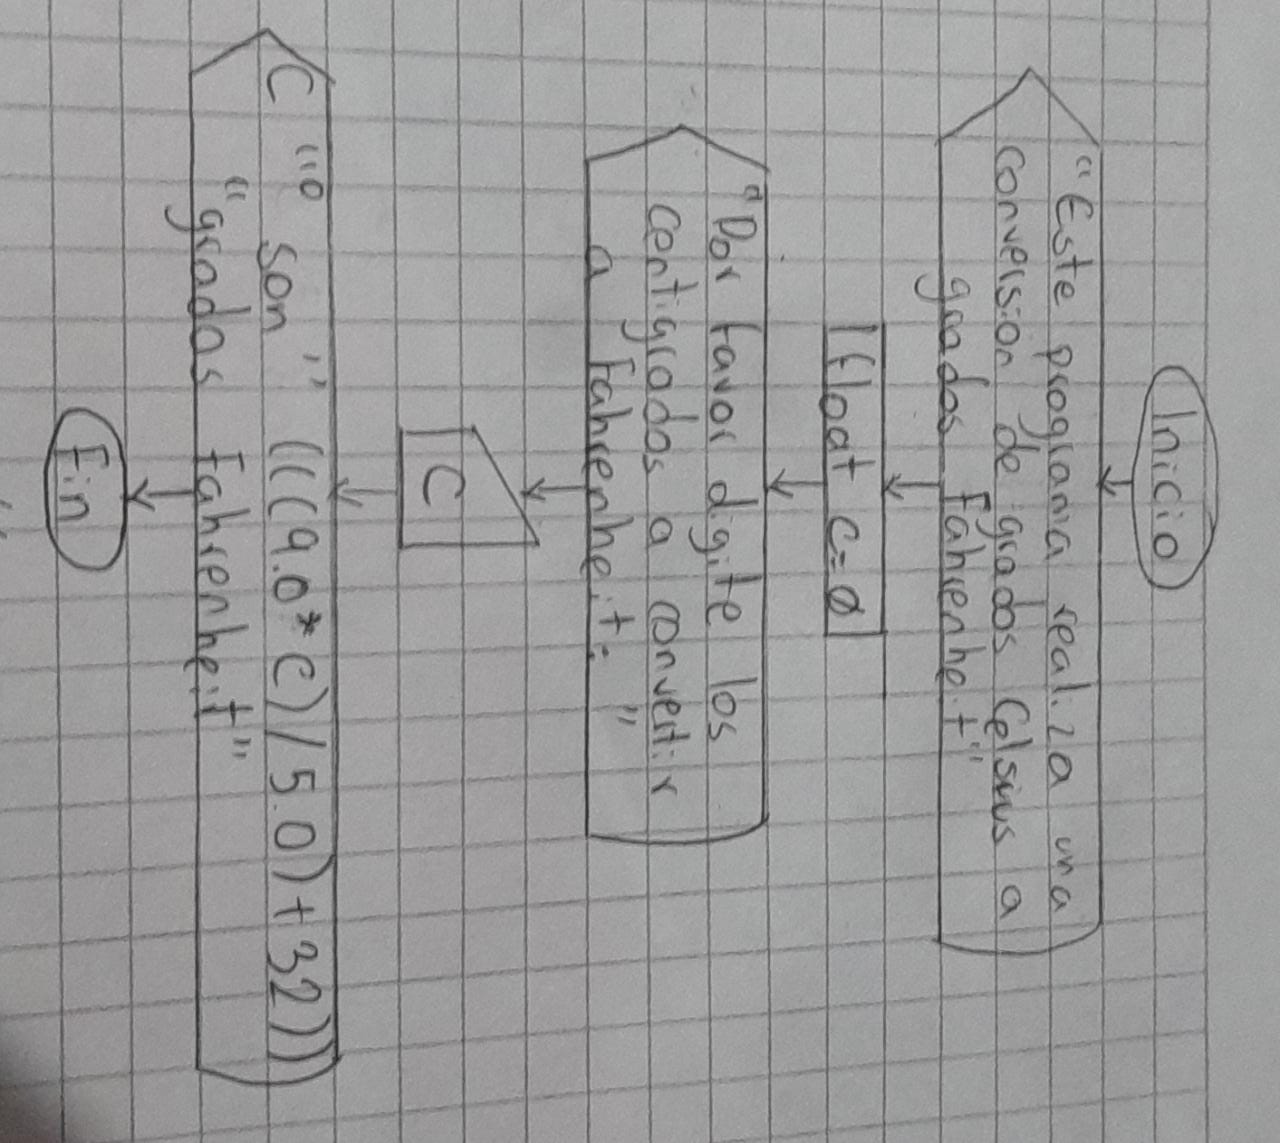 Inicio
"Este programa realiza una
conversion de grados Celsius a
grados Fahrenheit"
float c=0
"Por favor digite los
centigrados a convertir
a Fahrenheit: "
C
C "° son " (((9.0*C)/5.0)+32)))
"grados Fahrenheit"
Fin